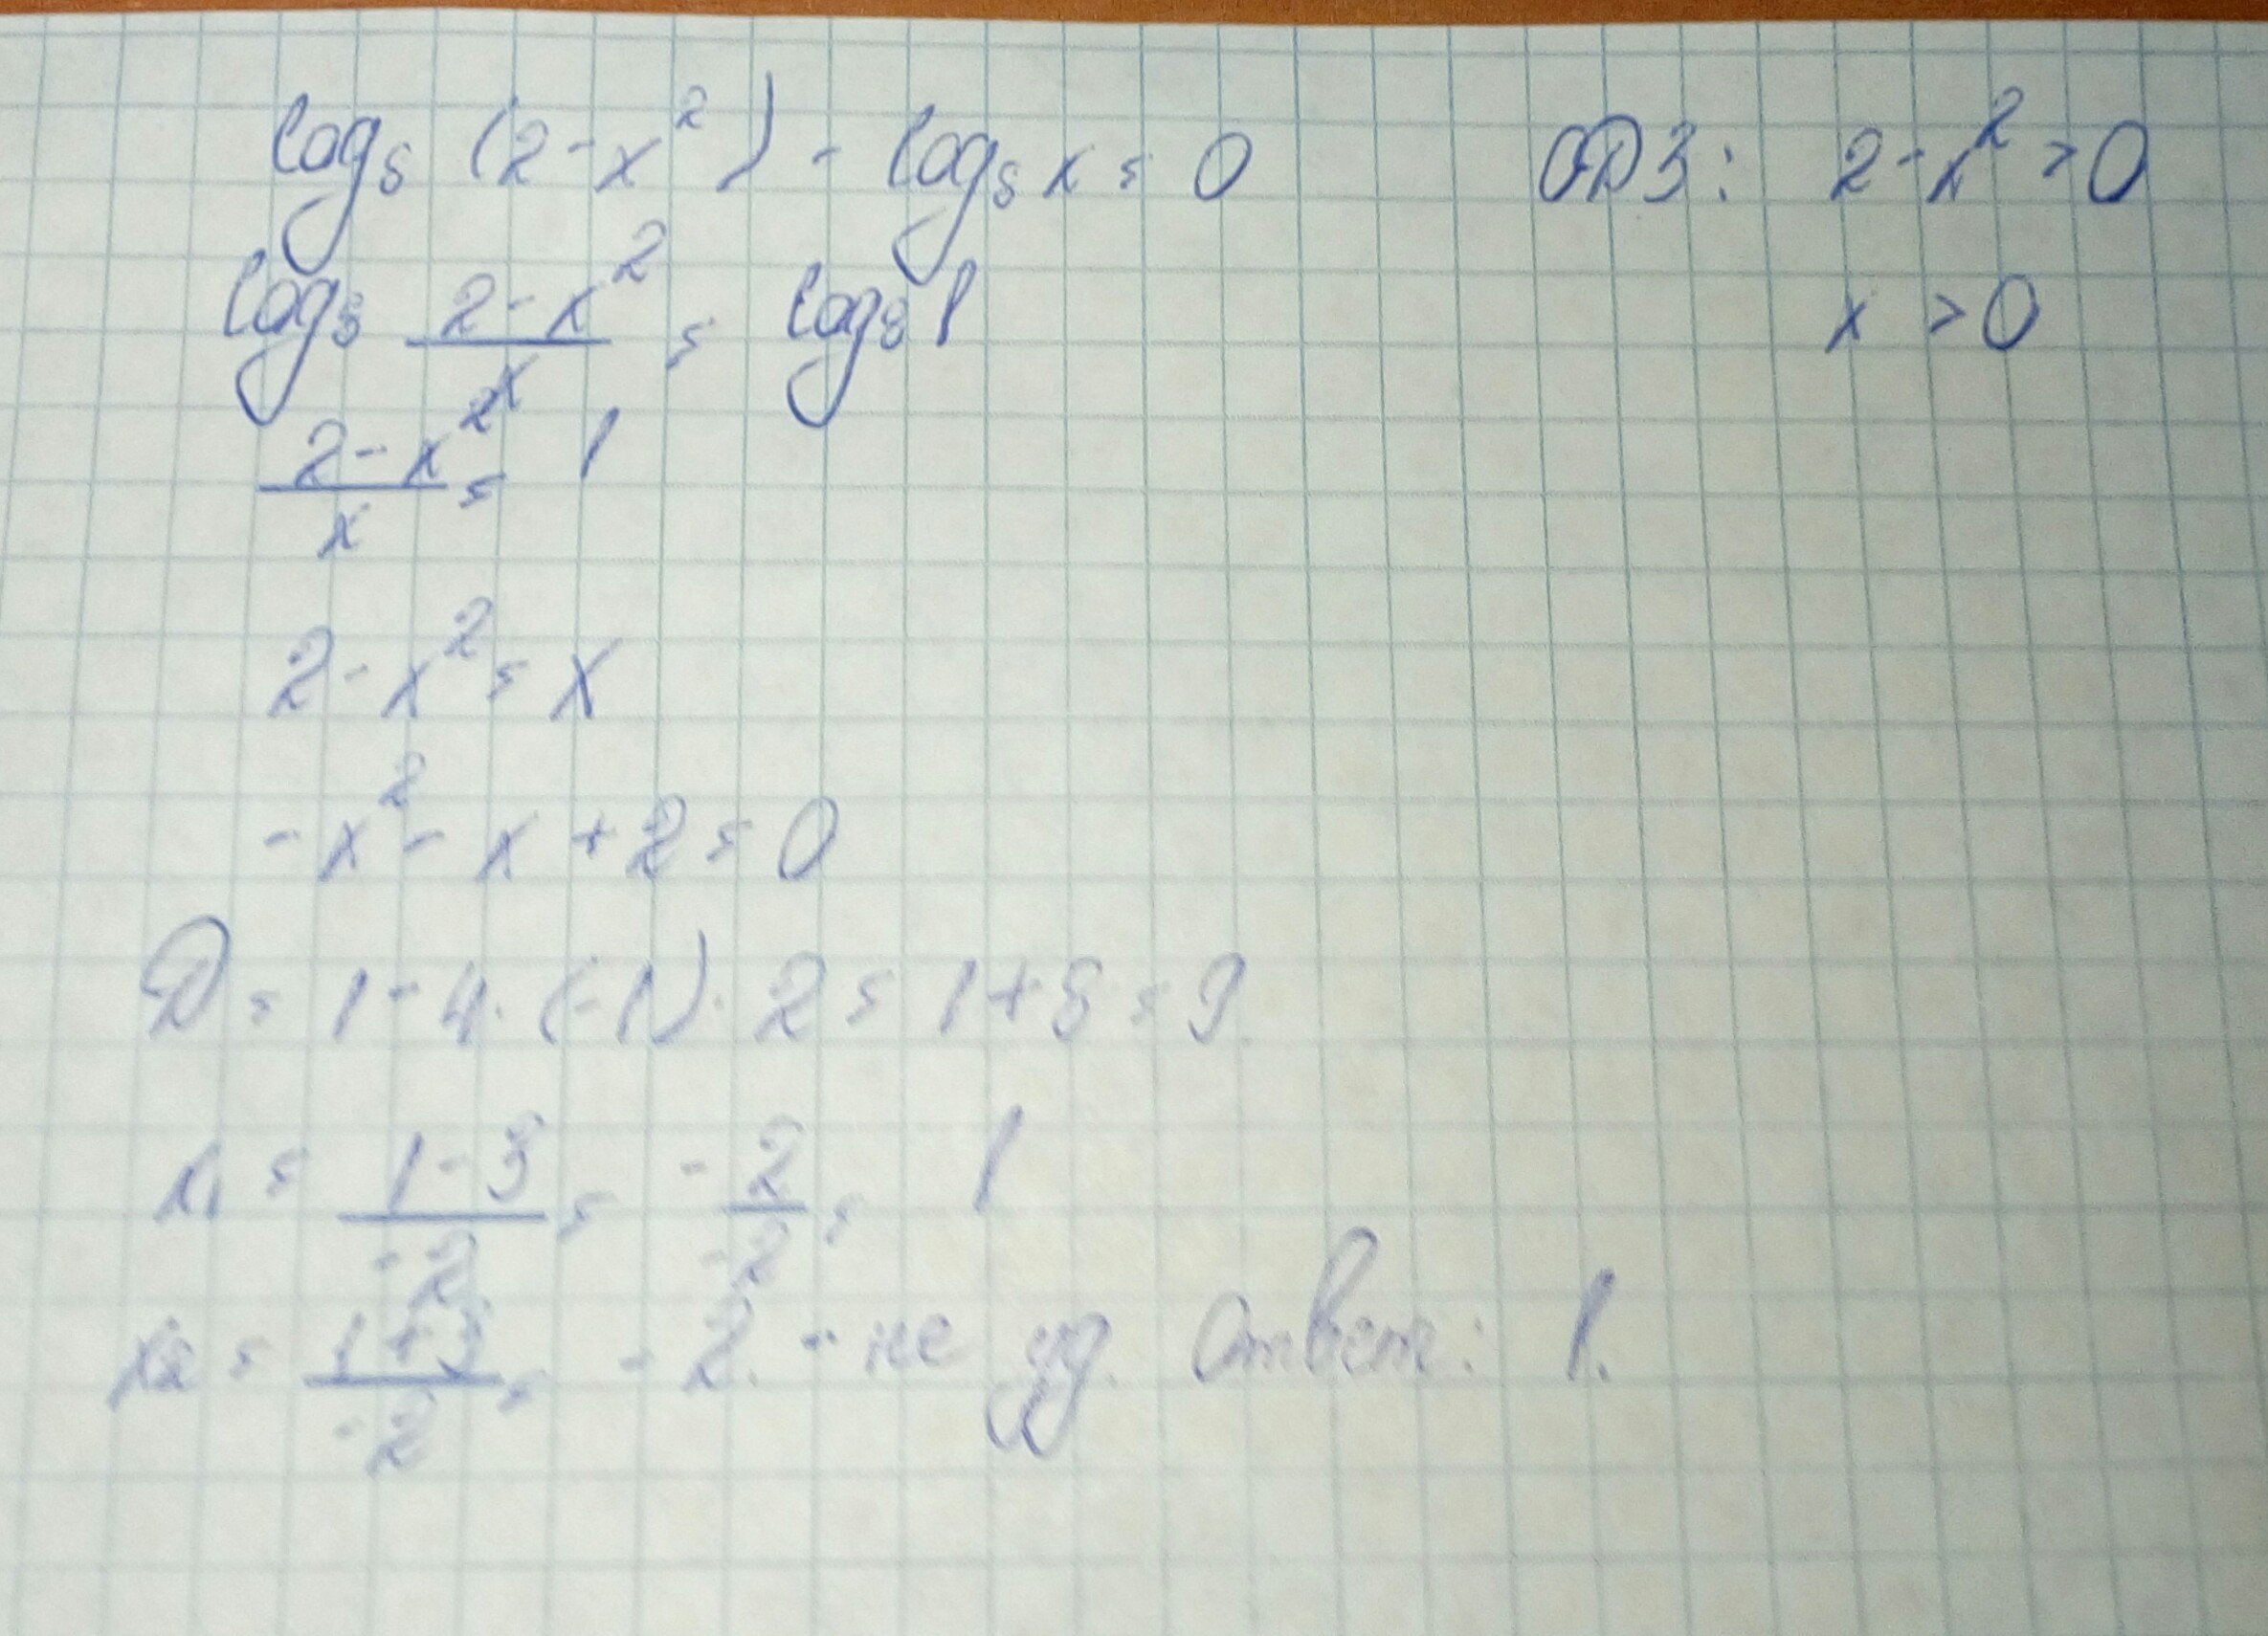 log₅ (2-x²) - log₅ x = 0 ОДЗ: 2-x² > 0
log₅ (2-x²)/x = log₅ 1 x > 0
(2-x²)/x = 1
2-x² = x
-x² - x + 2 = 0
D = 1 - 4·(-1)·2 = 1+8 = 9
x₁ = (1-3)/-2 = -2/-2 = 1
x₂ = (1+3)/-2 = -2. - не уд. Ответ: 1.